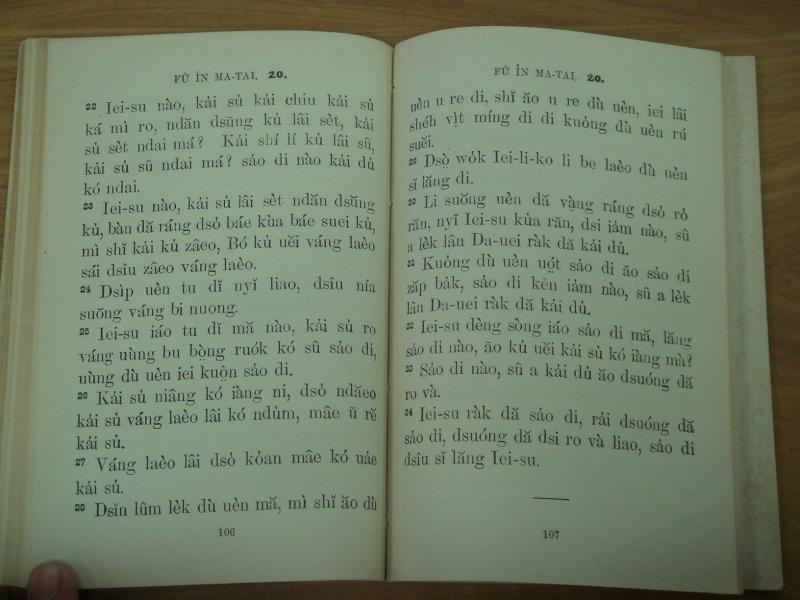 FÙ ÌN MA-TAI, 20.
22 Iei-su nào, kải sủ kải chiu kải sủ
ká mì ro, ndăn dsŭng kủ lâi sèt, kải
sủ sèt ndai má? Kải shí lí kủ lâi sû,
kải sủ sû ndai má? sảo di nào kải dủ
kó ndai.
23 Iei-su nào, kải sủ lâi sèt ndăn dsŭng
kủ, bàn dă ráng dsỏ báe kùa báe suei kủ,
mì shĭ kải kủ zâeo, Bó kủ uĕi váng laèo
sái dsîu zâeo váng laèo.
24 Dsìp uèn tu dĭ nyĭ liao, dsîu nía
suŏng váng bi nuong.
25 Iei-su iáo tu dĭ mă nào, kải sủ ro
váng uùng bu bò̤ng ruók kó sû sáo di,
uùng dù uèn iei kuo̤n sáo di.
26 Kải sủ niâng kó ìàng ni, dsỏ ndăeo
kải sủ váng laèo lâi kó ndủm, mâe ŭ rĕ
kải sủ.
27 Váng laèo lâi dsỏ kỏan mâe kó uảe
kải sủ.
28 Dsĭn lûm lèk dù uèn mă, mì shĭ ăo dù
106
FÙ ỈN MA-TAI, 20.
uèn u re di, shĭ ăo u re dù uèn, iei lâi
shéh vìt míng di di kuỏng dù uèn rú
suĕi.
29 Dsò̤ wỏk Iei-li-ko li be laèo dù uèn
sĭ lăng di.
30 Li suŏng uèn dă vàng ráng dsỏ rỏ
răn, nyĭ Iei-su kủa răn, dsi iảm nào, sû
a lèk lân Da-uei ràk dă kải dủ.
31 Kuỏng dù uèn uót sảo di ăo sảo di
zăp bảk, sảo di kên iảm nào, sû a lèk
lân Da-uei ràk dă kải dủ.
32 Iei-su dèng sòng iáo sảo di mă, lăng
sảo di nào, ăo kủ uĕi kải sủ kó ìàng mà?
33 Sảo di nào, sû a kải dủ ăo dsuóng dă
ro và.
34 Iei-su ràk dă sảo di, rải dsuóng dă
sảo di, dsuóng dă dsi ro và liao, sảo di
dsîu sĭ lăng Iei-su.
107